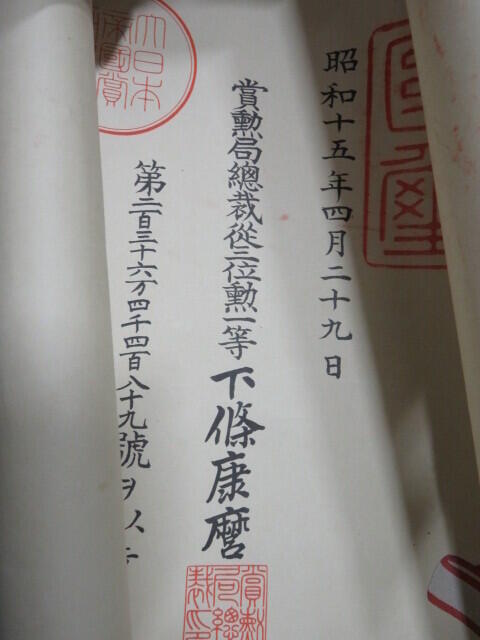 昭和十五年四月二十九日
賞勲局總裁從三位勲一等下條康麿
第二百三十六万四千四百八十九號ヲ以テ
大日本
帝國賞
賞勲
局總
裁印